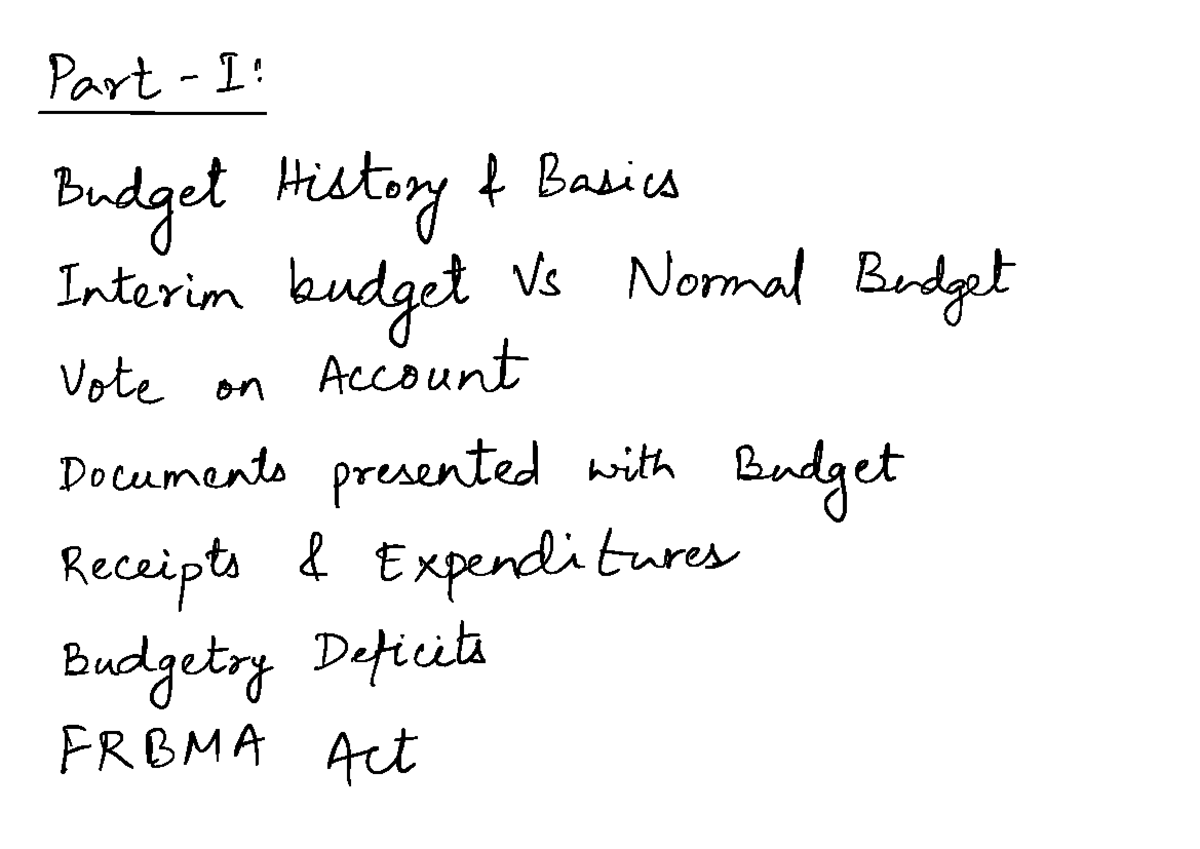 Part - I:
Budget History & Basics
Interim budget Vs Normal Budget
Vote on Account
Documents presented with Budget
Receipts & Expenditures
Budgetry Deficits
FRBMA Act